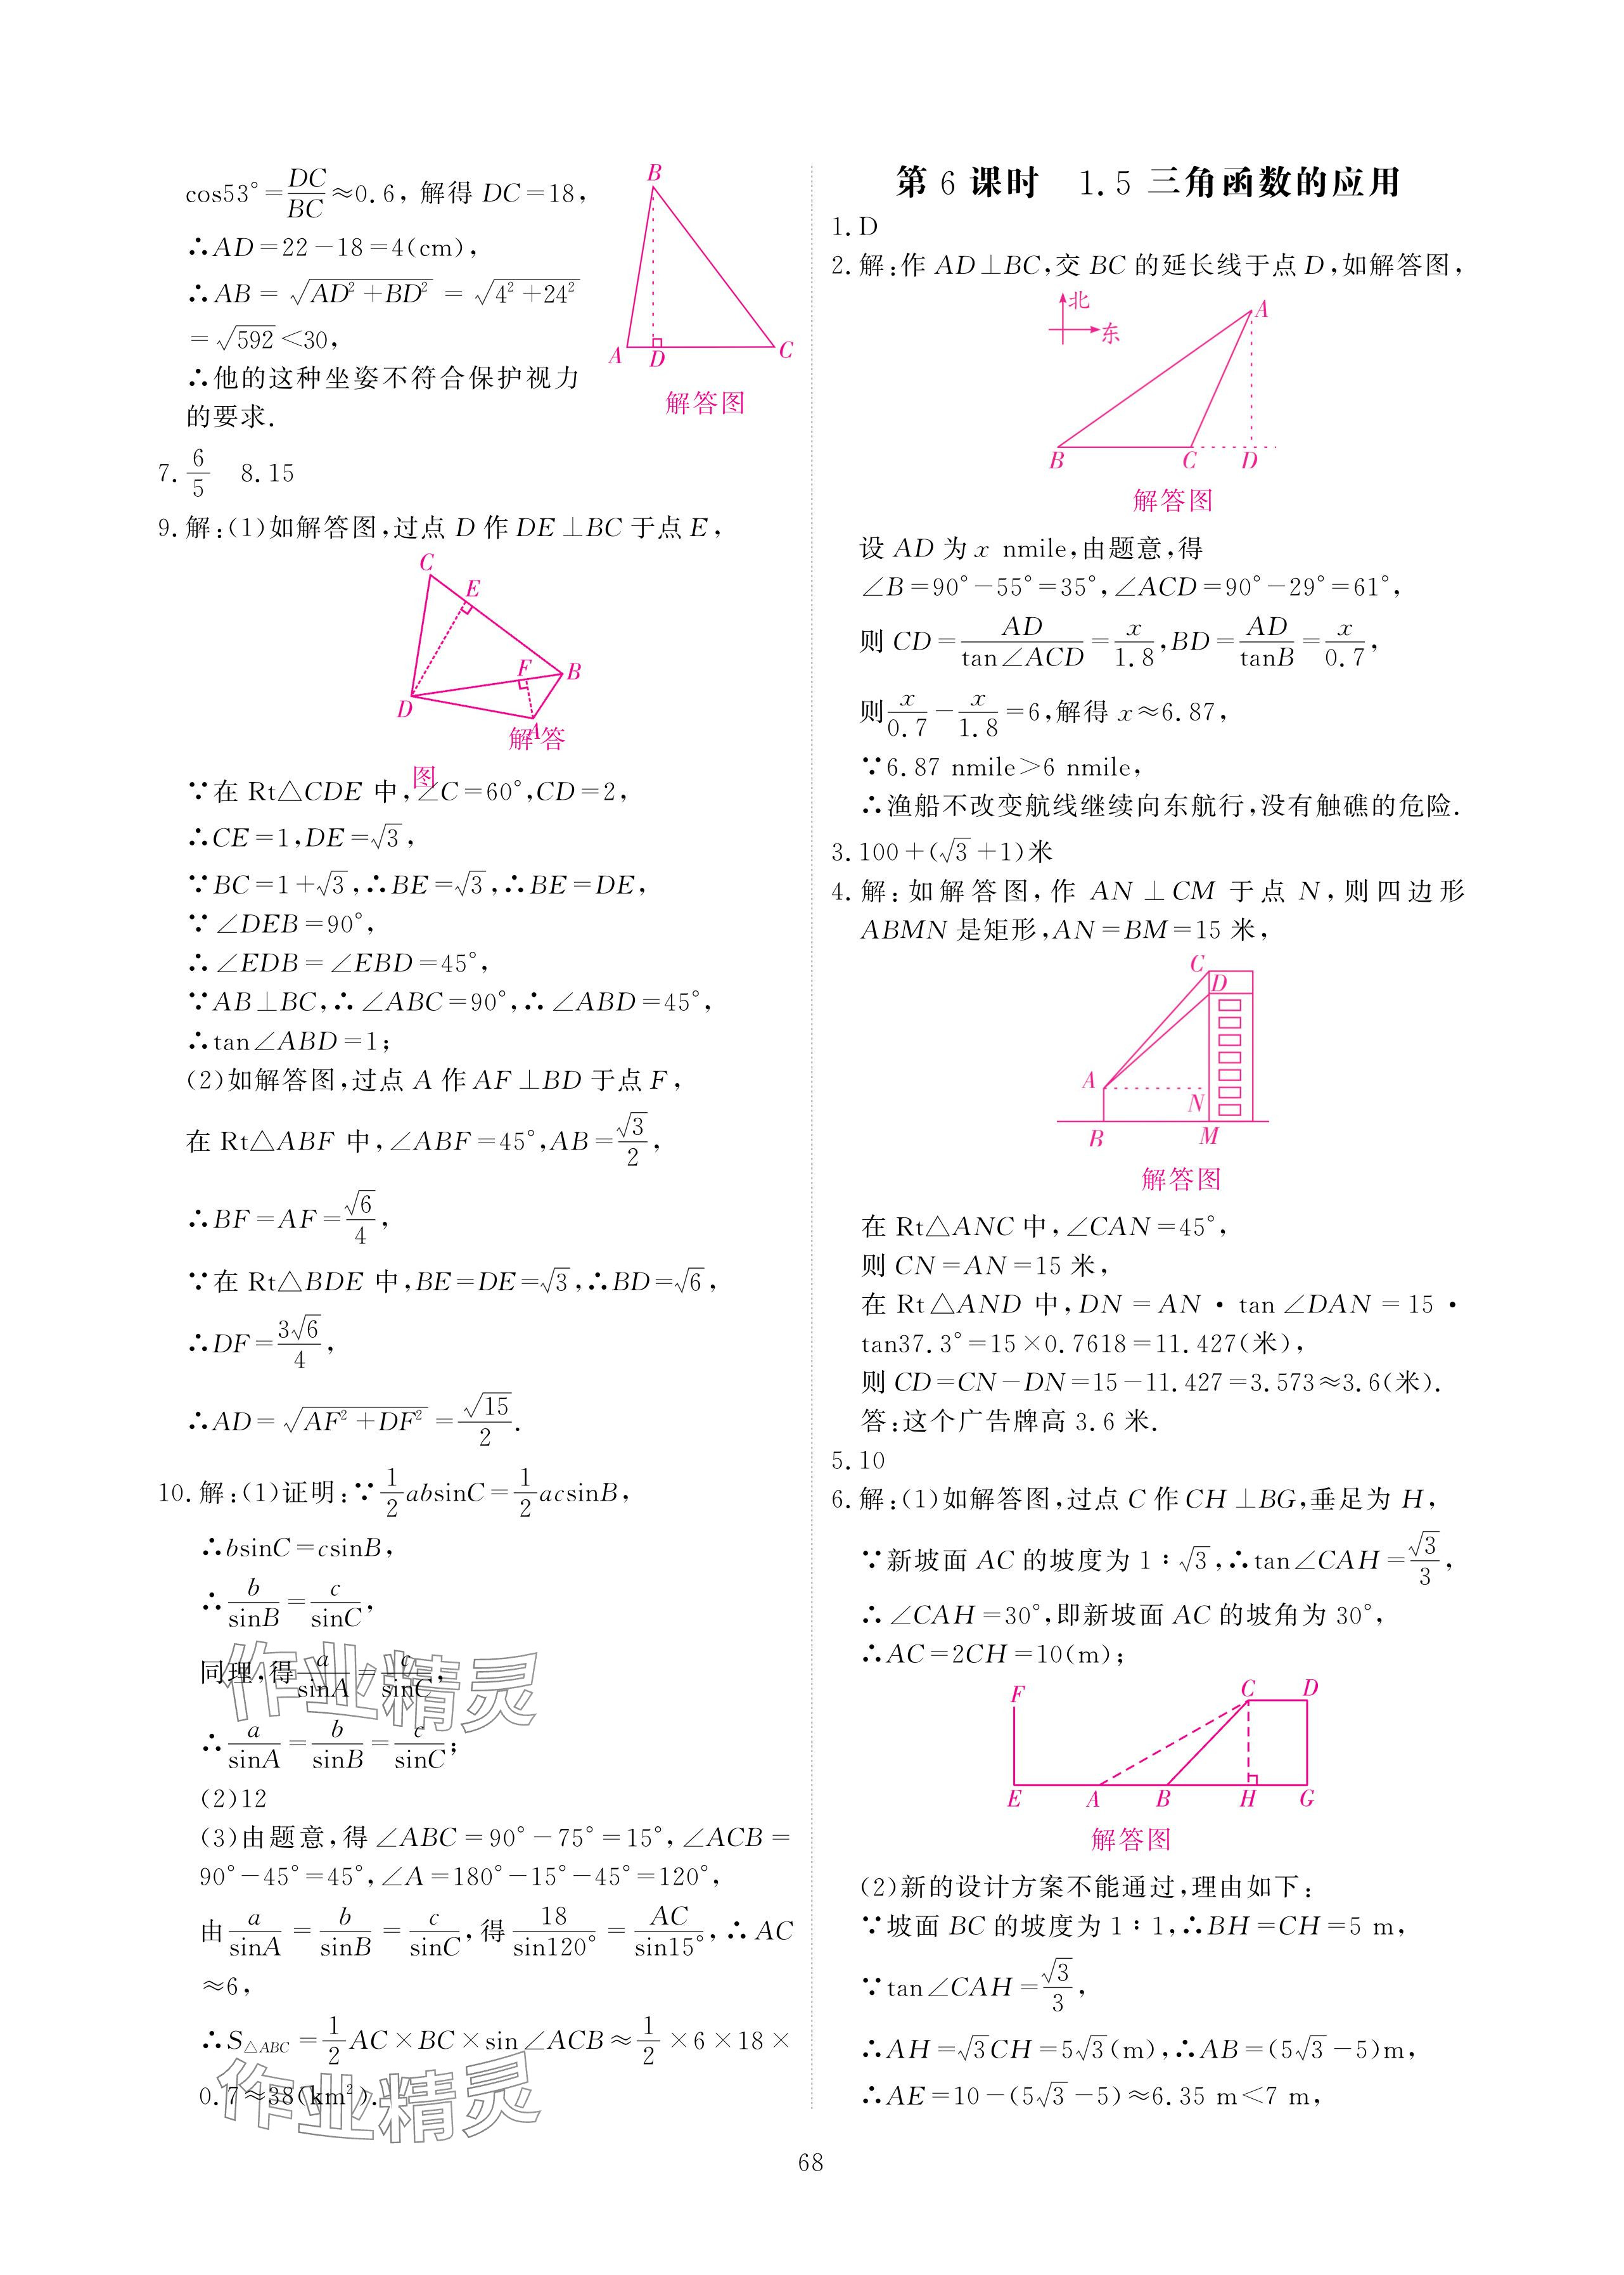 cos53°=DC/BC≈0.6, 解得 DC=18,
∴AD=22-18=4(cm),
∴AB=√(AD²+BD²)=√(4²+24²)
=√592<30,
∴他的这种坐姿不符合保护视力
的要求.
B
A
D
C
解答图
7. 6/5 8.15
9.解:(1)如解答图,过点 D 作 DE⊥BC 于点 E,
C
E
F
B
D
A
解答
图
∵在 Rt△CDE 中,∠C=60°,CD=2,
∴CE=1,DE=√3,
∵BC=1+√3,∴BE=√3,∴BE=DE,
∵∠DEB=90°,
∴∠EDB=∠EBD=45°,
∵AB⊥BC,∴∠ABC=90°,∴∠ABD=45°,
∴tan∠ABD=1;
(2)如解答图,过点 A 作 AF⊥BD 于点 F,
在 Rt△ABF 中,∠ABF=45°,AB=√3/2,
∴BF=AF=√6/4,
∵在 Rt△BDE 中,BE=DE=√3,∴BD=√6,
∴DF=3√6/4,
∴AD=√(AF²+DF²)=√15/2.
10.解:(1)证明:∵1/2absinC=1/2acsinB,
∴bsinC=csinB,
∴b/sinB=c/sinC,
同理,得a/sinA=c/sinC,
∴a/sinA=b/sinB=c/sinC;
(2)12
(3)由题意,得∠ABC=90°-75°=15°,∠ACB=
90°-45°=45°,∠A=180°-15°-45°=120°,
由a/sinA=b/sinB=c/sinC,得18/sin120°=AC/sin15°,∴AC
≈6,
∴S△ABC=1/2AC×BC×sin∠ACB≈1/2×6×18×
0.7≈38(km²).
作业精灵
作业精灵
第 6 课时 1.5 三角函数的应用
1.D
2.解:作 AD⊥BC,交 BC 的延长线于点 D,如解答图,
北
东
A
B
C
D
解答图
设 AD 为 x nmile,由题意,得
∠B=90°-55°=35°,∠ACD=90°-29°=61°,
则 CD=AD/tan∠ACD=x/1.8,BD=AD/tanB=x/0.7,
则x/0.7-x/1.8=6,解得 x≈6.87,
∵6.87 nmile>6 nmile,
∴渔船不改变航线继续向东航行,没有触礁的危险.
3.100+(√3+1)米
4.解:如解答图,作 AN⊥CM 于点 N,则四边形
ABMN 是矩形,AN=BM=15 米,
C
D
A
N
B
M
解答图
在 Rt△ANC 中,∠CAN=45°,
则 CN=AN=15 米,
在 Rt△AND 中,DN=AN·tan∠DAN=15·
tan37.3°=15×0.7618=11.427(米),
则 CD=CN-DN=15-11.427=3.573≈3.6(米).
答:这个广告牌高 3.6 米.
5.10
6.解:(1)如解答图,过点 C 作 CH⊥BG,垂足为 H,
∵新坡面 AC 的坡度为 1:√3,∴tan∠CAH=√3/3,
∴∠CAH=30°,即新坡面 AC 的坡角为 30°,
∴AC=2CH=10(m);
F
C
D
E
A
B
H
G
解答图
(2)新的设计方案不能通过,理由如下:
∵坡面 BC 的坡度为 1:1,∴BH=CH=5 m,
∵tan∠CAH=√3/3,
∴AH=√3CH=5√3(m),∴AB=(5√3-5)m,
∴AE=10-(5√3-5)≈6.35 m<7 m,
68